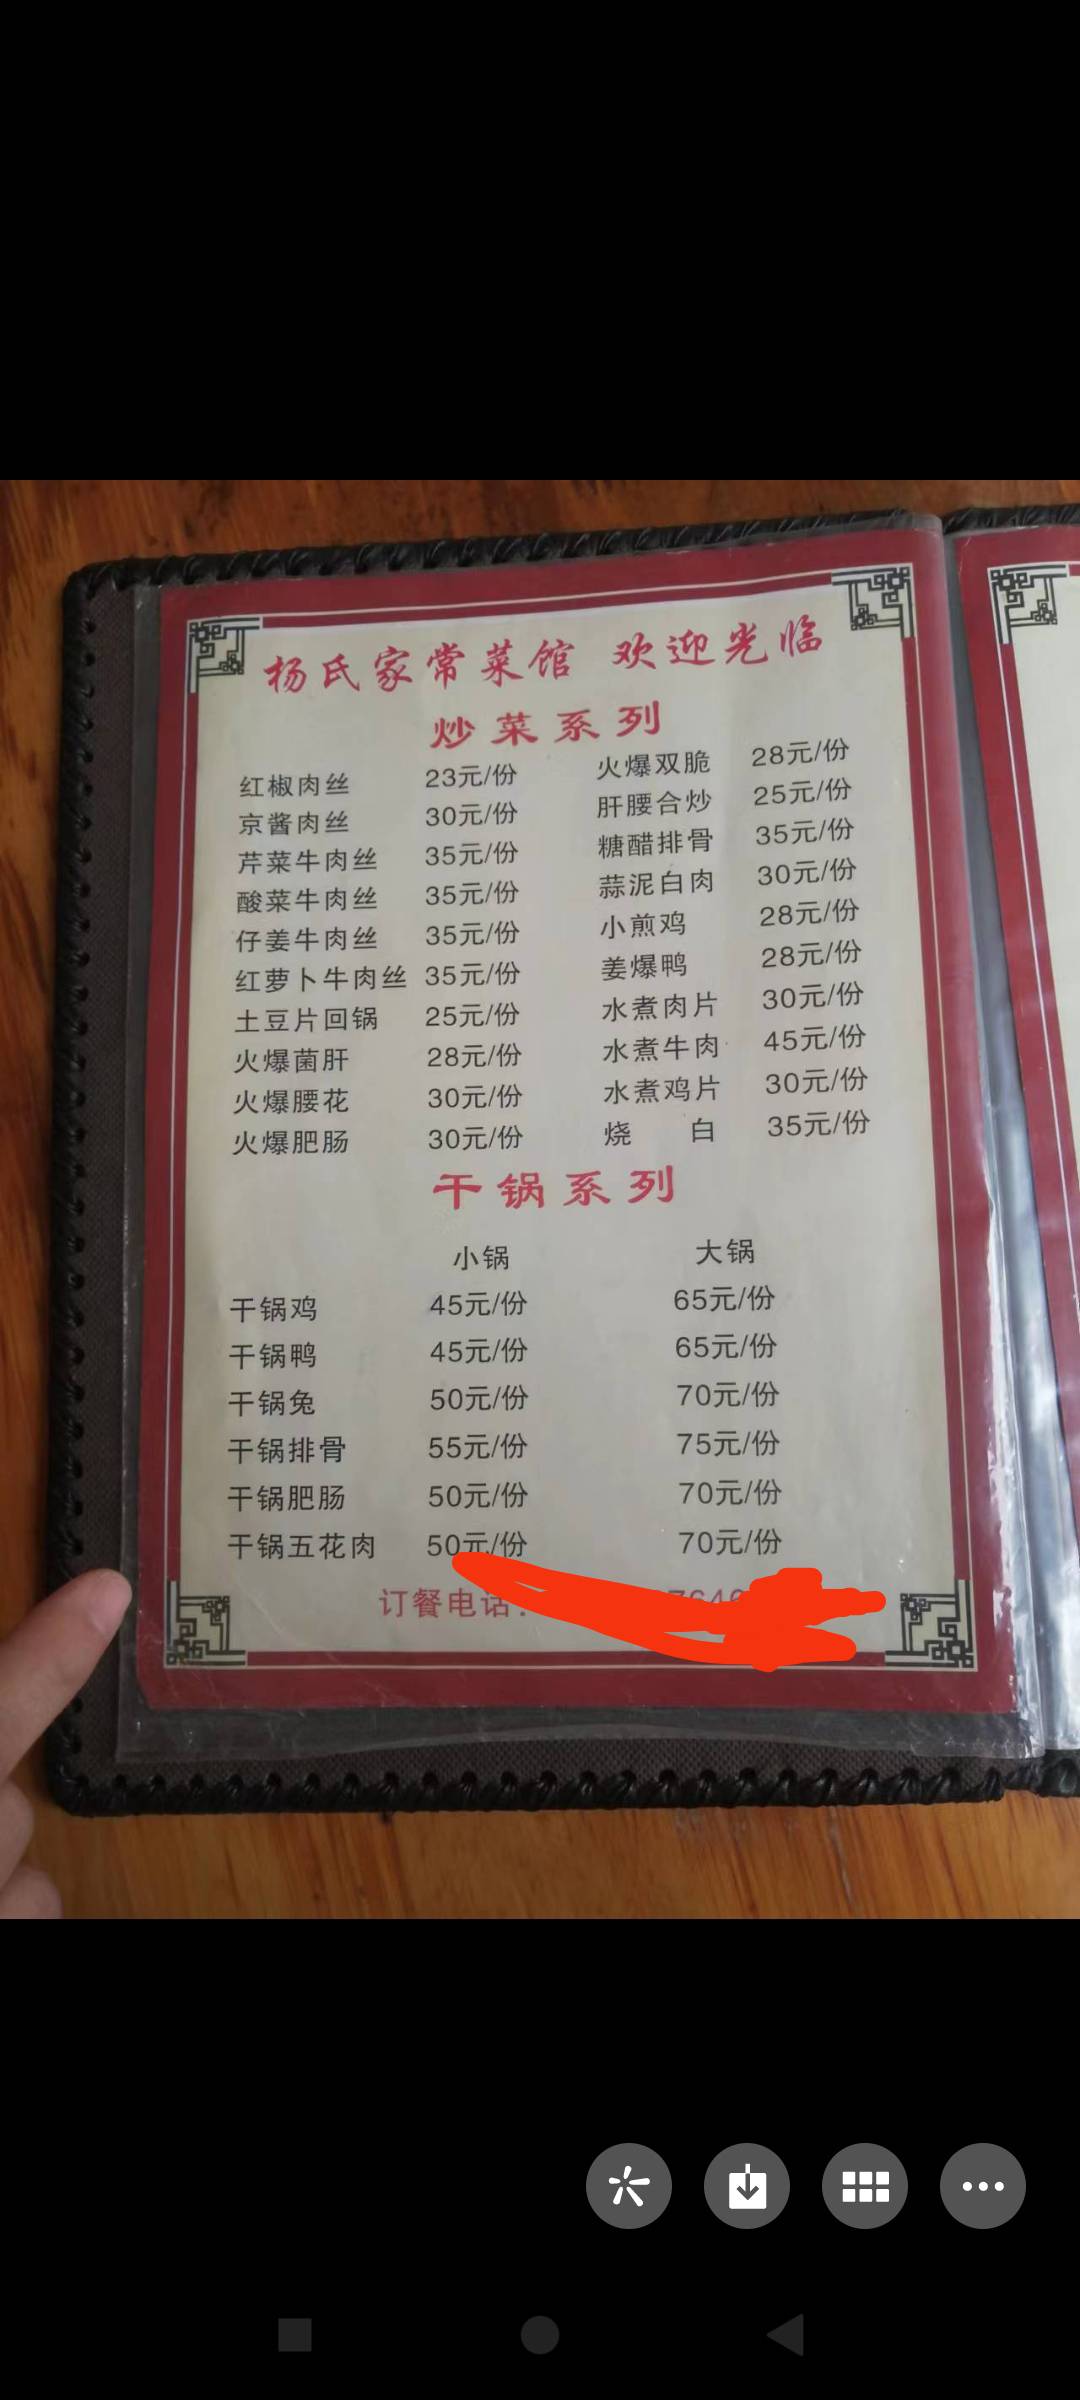 杨氏家常菜馆 欢迎光临
炒菜系列
红椒肉丝 23元/份 火爆双脆 28元/份
京酱肉丝 30元/份 肝腰合炒 25元/份
芹菜牛肉丝 35元/份 糖醋排骨 35元/份
酸菜牛肉丝 35元/份 蒜泥白肉 30元/份
仔姜牛肉丝 35元/份 小煎鸡 28元/份
红萝卜牛肉丝 35元/份 姜爆鸭 28元/份
土豆片回锅 25元/份 水煮肉片 30元/份
火爆菌肝 28元/份 水煮牛肉 45元/份
火爆腰花 30元/份 水煮鸡片 30元/份
火爆肥肠 30元/份 烧白 35元/份
干锅系列
小锅 大锅
干锅鸡 45元/份 65元/份
干锅鸭 45元/份 65元/份
干锅兔 50元/份 70元/份
干锅排骨 55元/份 75元/份
干锅肥肠 50元/份 70元/份
干锅五花肉 50元/份 70元/份
订餐电话: